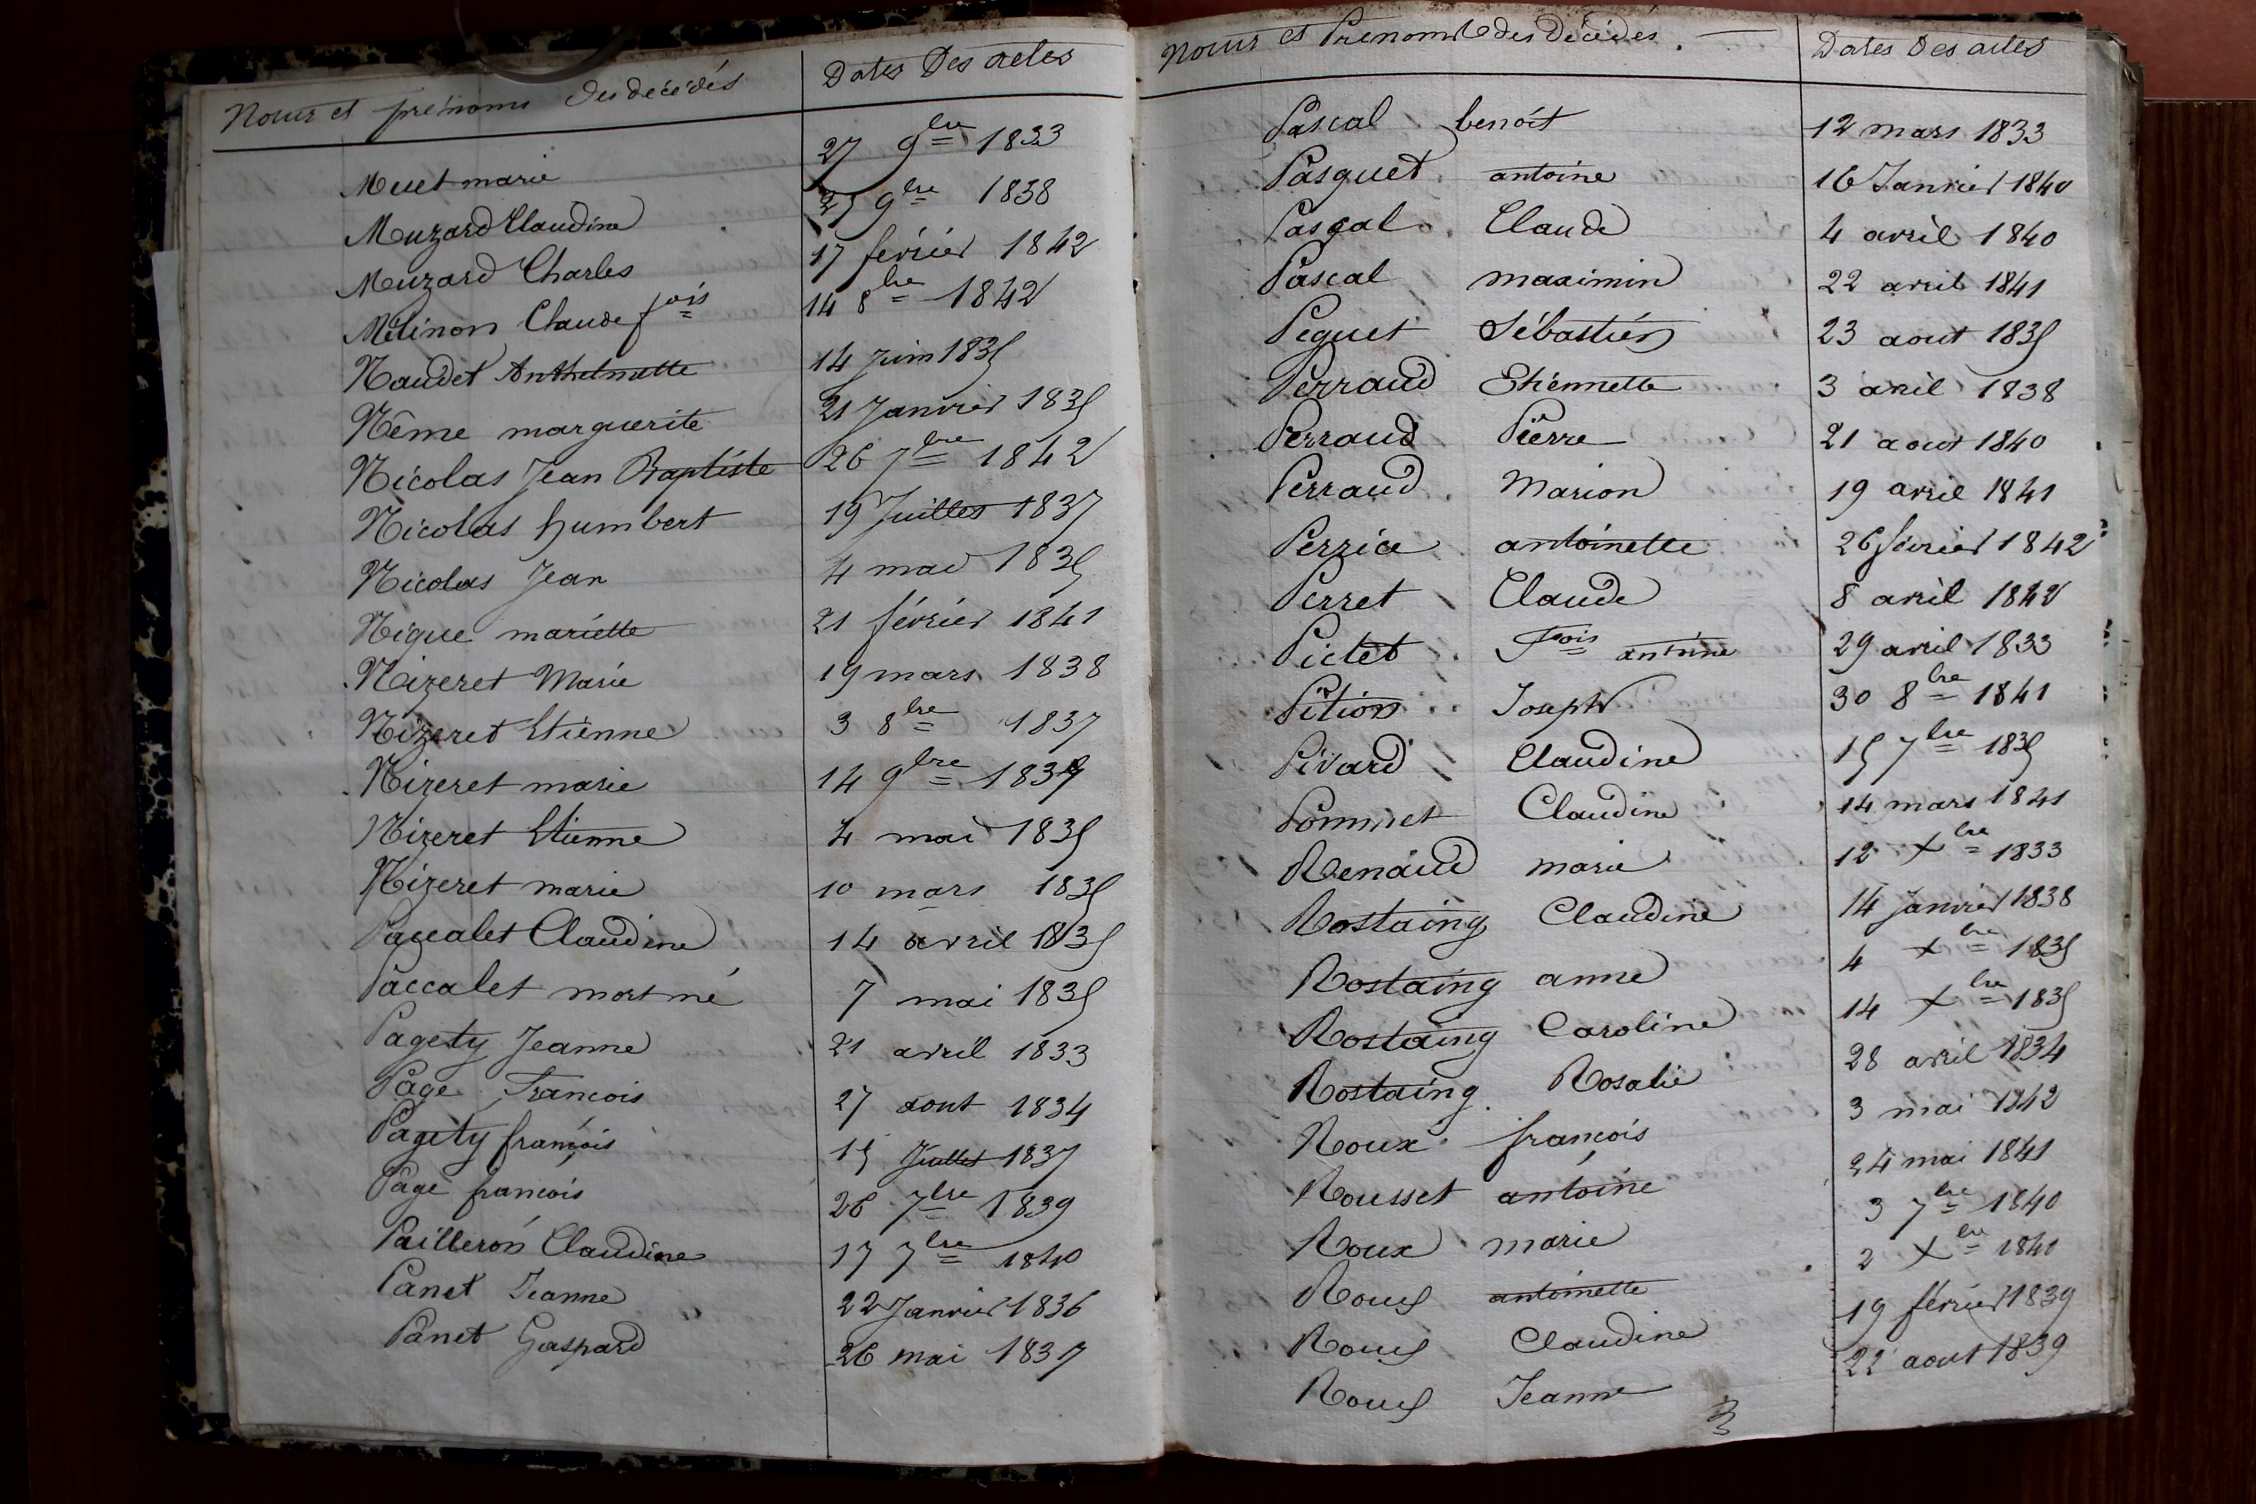 Noms et prénoms des décédés Dates Des actes
Muet marie 27 9bre 1833
Muzard Claudine 27 9bre 1838
Muzard Charles 17 février 1842
Mélinon Claude fois 14 8bre 1842
Naudet Anthelmette 14 Juin 1835
Nême marguerite 21 Janvier 1835
Nicolas Jean Baptiste 26 7bre 1842
Nicolas humbert 19 Juillet 1837
Nicolas Jean 4 mai 1835
Nigue mariette 21 février 1841
Nizeret Marie 19 mars 1838
Nizeret Etienne 3 8bre 1837
Nizeret marie 14 9bre 1839
Nizeret Etienne 4 mai 1835
Nizeret marie 10 mars 1835
Paccalet Claudine 14 avril 1835
Paccalet mort né 7 mai 1835
Pagety Jeanne 21 avril 1833
Page Francois 27 aout 1834
Pagety françois 15 Juillet 1837
Page francois 26 7bre 1839
Pailleron Claudine 17 7bre 1840
Panet Jeanne 22 Janvier 1836
Panet Gaspard 26 mai 1837
Noms et Prenoms des Décédés. Dates Des actes
Pascal benoit 12 mars 1833
Pasquet antoine 16 Janvier 1840
Pascal Claude 4 avril 1840
Pascal maximin 22 avril 1841
Peguet Sébastien 23 aout 1835
Perraud Etiennette 3 avril 1838
Perraud Pierre 21 aout 1840
Perraud Marion 19 avril 1841
Perrice antoinette 26 février 1842
Perret Claude 8 avril 1842
Pictet Fois antoine 29 avril 1833
Pition Joseph 30 8bre 1841
Pivard Claudine 15 7bre 1835
Pommet Claudine 14 mars 1841
Renaud marie 12 Xbre 1833
Rostaing Claudine 14 Janvier 1838
Rostaing anne 4 Xbre 1835
Rostaing Caroline 14 Xbre 1835
Rostaing Rosalie 28 avril 1834
Roux françois 3 mai 1842
Rousset antoine 24 mai 1841
Roux marie 3 7bre 1840
Roux antoinette 2 Xbre 1840
Roux Claudine 19 février 1839
Roux Jeanne 22 aout 1839